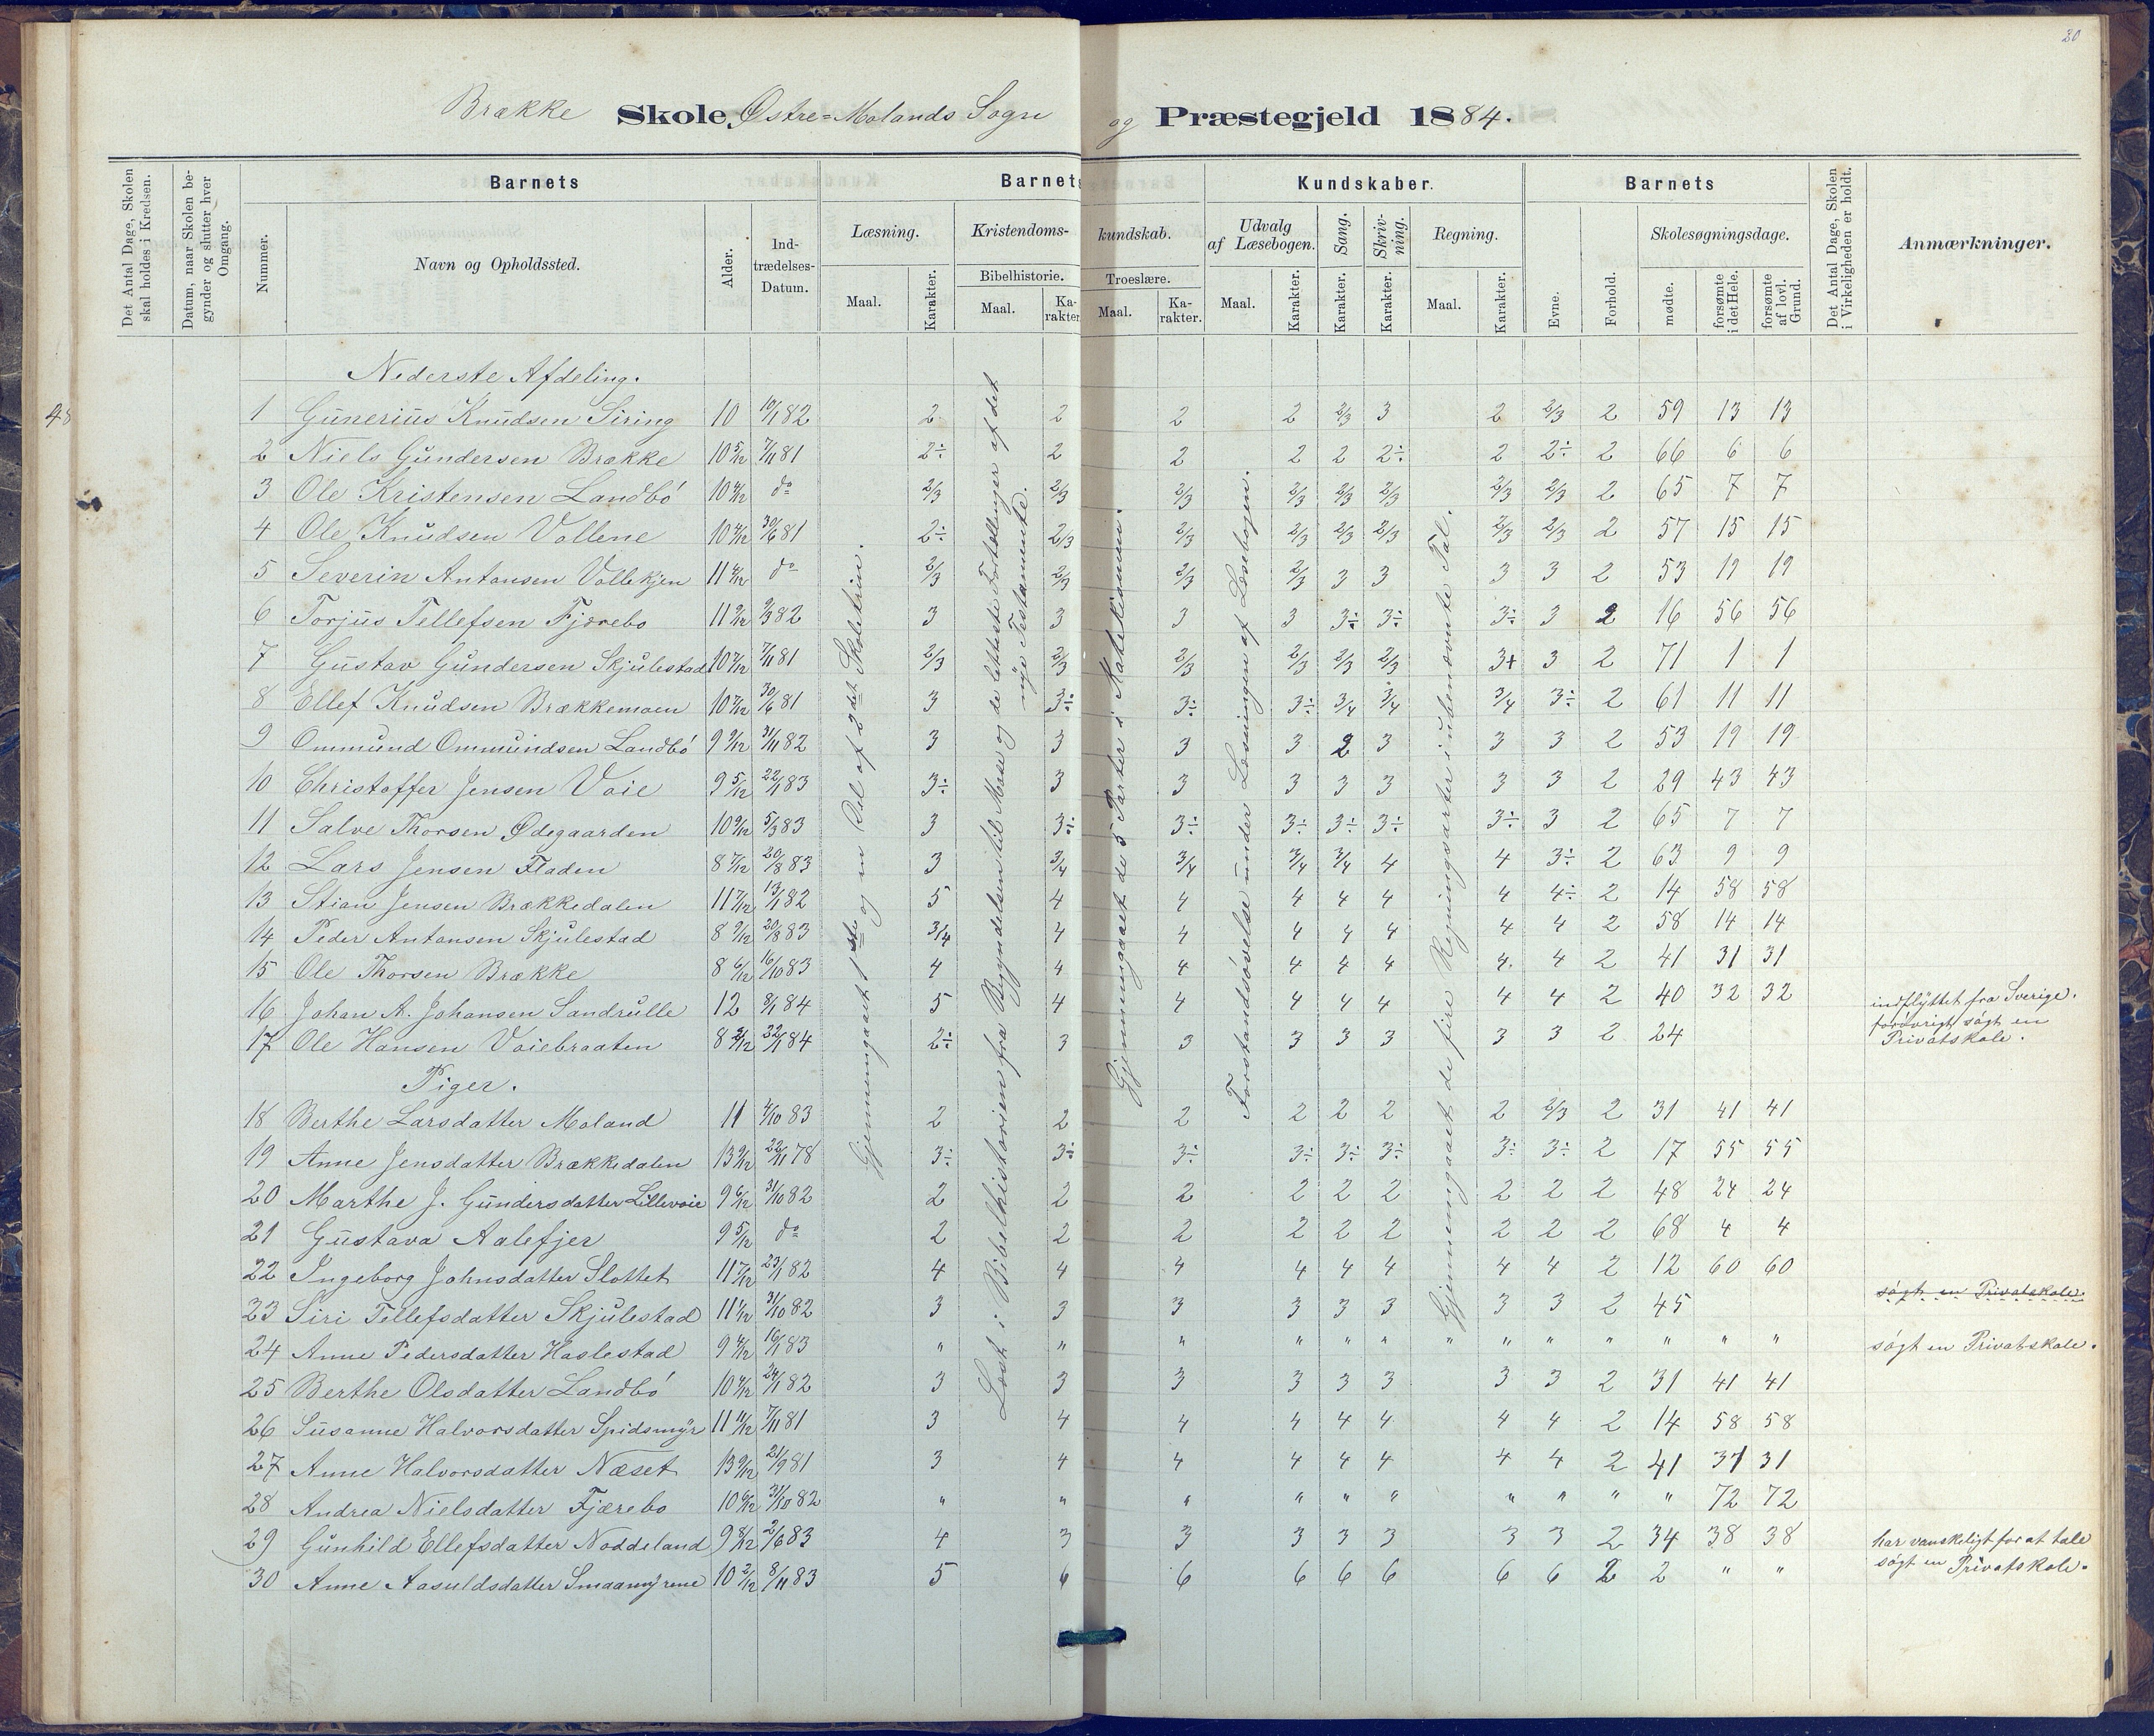 20
Brække Skole, Østre=Molands Sogn og Præstegjeld 1884.
Det Antal Dage, Skolen skal holdes i Kredsen.
Datum, naar Skolen begynder og slutter hver Omgang.
Barnets
Nummer.
Navn og Opholdssted.
Alder.
Indtrædelses-Datum.
Barnets Kundskaber.
Læsning.
Maal.
Karakter.
Kristendomskundskab.
Bibelhistorie.
Maal.
Karakter.
Troeslære.
Maal.
Karakter.
Udvalg af Læsebogen.
Maal.
Karakter.
Sang.
Karakter.
Skrivning.
Karakter.
Regning.
Maal.
Karakter.
Barnets
Evne.
Forhold.
Skolesøgningsdage.
mødte.
forsømte i det Hele.
forsømte af lovl. Grund.
Det Antal Dage, Skolen i Virkeligheden er holdt.
Anmærkninger.
48
Nederste Afdeling.
1 Gunerius Knudsen Siring 10 10/1 82 2 2 2 2 2/3 3 2 2/3 2 59 13 13
2 Niels Gundersen Brække 10 5/12 7/11 81 2÷ 2 2 2 2 2÷ 2 2÷ 2 66 6 6
3 Ole Kristensen Landbö 10 4/12 do 2/3 2/3 2/3 2/3 2/3 2/3 2/3 2/3 2 65 7 7
4 Ole Knudsen Vollene 10 4/12 30/6 81 2÷ 2/3 2/3 2/3 2/3 2/3 2/3 2/3 2 57 15 15
5 Severin Antonsen Vollekjen 11 4/12 do 2/3 2/3 2/3 2/3 3 3 3 3 2 53 19 19
6 Torjus Tellefsen Fjærebo 11 9/12 9/3 82 3 3 3 3 3÷ 3÷ 3÷ 3 2 16 56 56
7 Gustav Gundersen Skjulestad 10 7/12 7/11 81 2/3 2/3 2/3 2/3 2/3 2/3 3+ 3 2 71 1 1
8 Ellef Knudsen Brækkemoen 10 7/12 30/6 81 3 3÷ 3÷ 3÷ 3/4 3/4 3/4 3÷ 2 61 11 11
9 Ommund Ommundsen Landbö 9 9/12 31/11 82 3 3 3 3 2 3 3 3 2 53 19 19
10 Christoffer Jensen Voie 9 5/12 22/1 83 3÷ 3 3 3 3 3 3 3 2 29 43 43
11 Salve Thorsen Ødegaarden 10 9/12 5/3 83 3 3÷ 3÷ 3÷ 3÷ 3÷ 3÷ 3 2 65 7 7
12 Lars Jensen Fladen 8 7/12 20/8 83 3 3/4 3/4 3/4 3/4 4 4 3÷ 2 63 9 9
13 Stian Jensen Brækkedalen 11 7/12 13/1 82 5 4 4 4 4 4 4 4÷ 2 14 58 58
14 Peder Antonsen Skjulestad 8 9/12 20/8 83 3/4 4 4 4 4 4 4 4 2 58 14 14
15 Ole Thorsen Brække 8 6/12 16/10 83 4 4 4 4 4 4 4. 4 2 41 31 31
16 Johan A. Johansen Sandrulle 12 8/1 84 5 4 4 4 4 4 4 4 2 40 32 32 indflyttet fra Sverige.
17 Ole Hansen Voiebraaten 8 2/12 22/1 84 2÷ 3 3 3 3 3 3 3 2 24 forövrigt sögt en Privatskole.
Piger.
18 Berthe Larsdatter Moland 11 4/10 83 2 2 2 2 2 2 2 2/3 2 31 41 41
19 Anne Jensdatter Brækkedalen 13 9/12 22/11 78 3÷ 3÷ 3÷ 3÷ 3÷ 3÷ 3÷ 3÷ 2 17 55 55
20 Marthe J. Gundersdatter Lillevoie 9 6/12 31/10 82 2 2 2 2 2 2 2 2 2 48 24 24
21 Gustava Aalefjer 9 5/12 do 2 2 2 2 2 2 2 2 2 68 4 4
22 Ingeborg Johnsdatter Slottet 11 7/12 23/1 82 4 4 4 4 4 4 4 4 2 12 60 60
23 Siri Tellefsdatter Skjulestad 11 1/12 31/10 82 3 3 3 3 3 3 3 3 2 45 sögt en Privatskole.
24 Anne Pedersdatter Haslestad 9 4/12 16/1 83 " " " " " " " " " " " " " sögt en Privatskole.
25 Berthe Olsdatter Landbö 10 4/12 24/1 82 3 3 3 3 3 3 3 3 2 31 41 41
26 Susanne Halvorsdatter Spidsmyr 11 11/12 7/11 81 3 4 4 4 4 4 4 4 2 14 58 58
27 Anne Halvorsdatter Næset 13 9/12 21/9 81 3 4 4 4 4 4 4 4 2 41 31 31
28 Andrea Nielsdatter Fjærebo 10 6/12 31/10 82 " " " " " " " " " " 72 72
29 Gunhild Ellefsdatter Noddeland 9 8/12 2/6 83 4 3 3 3 3 3 3 3 2 34 38 38 har vanskeligt for at tale
30 Anne Aasuldsdatter Smaamyrene 10 2/12 8/11 83 5 6 6 6 6 6 6 6 2 2 " " sögt en Privatskole.
Gjennemgaaet 1ste og en Del af 2det Skoletrin.
Læst i Bibelhistorien fra Begyndelsen til Mose og de letteste Fortællinger af det nye Testamente.
Gjennemgaaet de 5 Parter i Katekismen.
Forstandsövelse under Læsningen af Læsebogen.
Gjennemgaaet de fire Regningsarter i ubenævnte Tal.